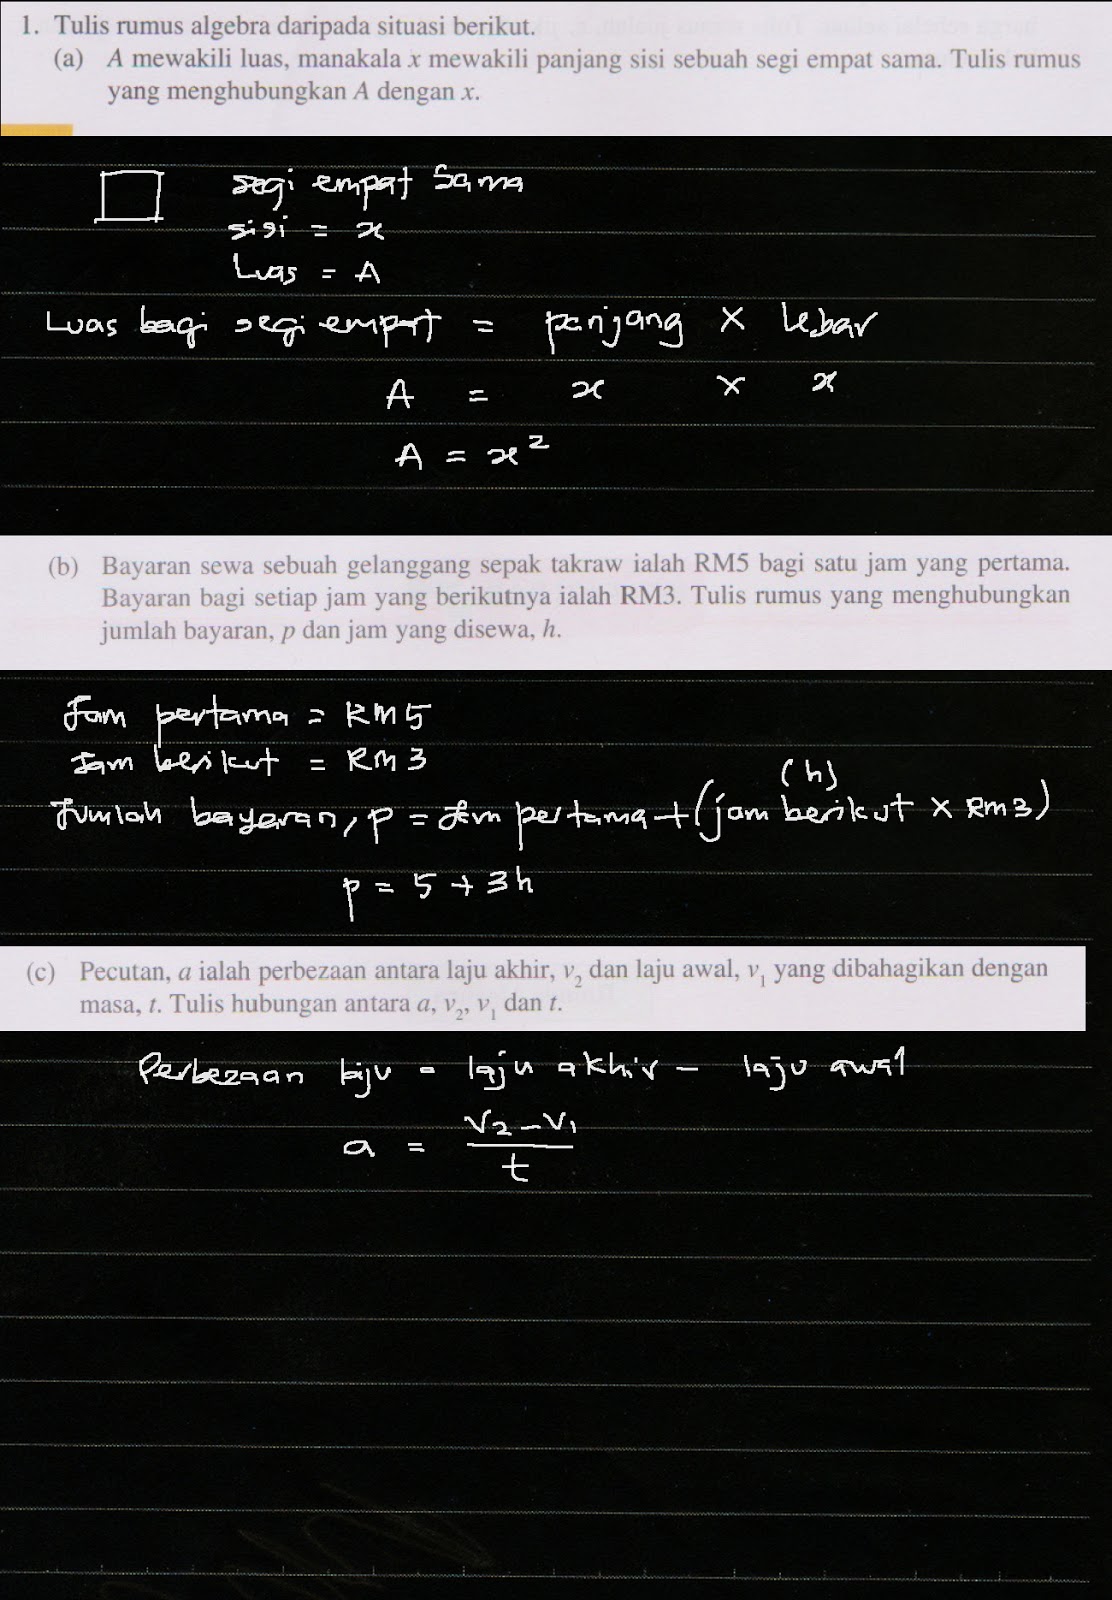 1. Tulis rumus algebra daripada situasi berikut.
(a) A mewakili luas, manakala x mewakili panjang sisi sebuah segi empat sama. Tulis rumus
yang menghubungkan A dengan x.
segi empat sama
sisi = x
Luas = A
Luas bagi segi empat = panjang × lebar
A = x × x
A = x²
(b) Bayaran sewa sebuah gelanggang sepak takraw ialah RM5 bagi satu jam yang pertama.
Bayaran bagi setiap jam yang berikutnya ialah RM3. Tulis rumus yang menghubungkan
jumlah bayaran, p dan jam yang disewa, h.
Jam pertama = RM5
Jam berikut = RM3
(h)
Jumlah bayaran, p = Jam pertama + (jam berikut × RM3)
p = 5 + 3h
(c) Pecutan, a ialah perbezaan antara laju akhir, v₂ dan laju awal, v₁ yang dibahagikan dengan
masa, t. Tulis hubungan antara a, v₂, v₁ dan t.
Perbezaan laju = laju akhir – laju awal
a = (v₂ – v₁)/t